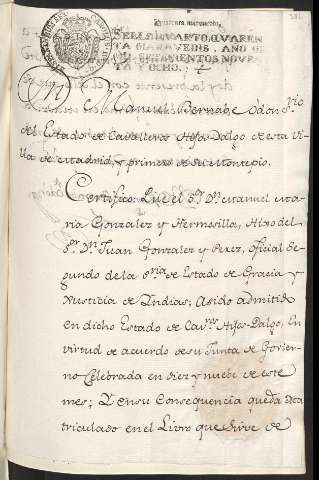 Quarenta maravedis.
SELLO QUARTO, QUAREN
TA MARAVEDIS, AÑO DE
MIL SETECIENTOS NOVEN
TA Y OCHO.
Dn. Manuel Bernabe Odon Srio
del Estado de Cavalleros Hijos-Dalgo de esta Vi
lla de Madrid, y primero de su Montepio.
Certifico: Que el Sr. Dn. Manuel Ma
ria Gonzalez y Hermosilla, Hijo del
Sor. Dn. Juan Gonzalez y Perez, Oficial Se-
gundo de la Sria de Estado de Gracia y
Justicia de Indias; A sido admitido
en dicho Estado de Cavros Hijos-Dalgo, En
virtud de acuerdo de su Junta de Govier-
no Celebrada en diez y nueve de este
mes; Y en su Consequencia queda Ma
triculado en el Libro que sirve de